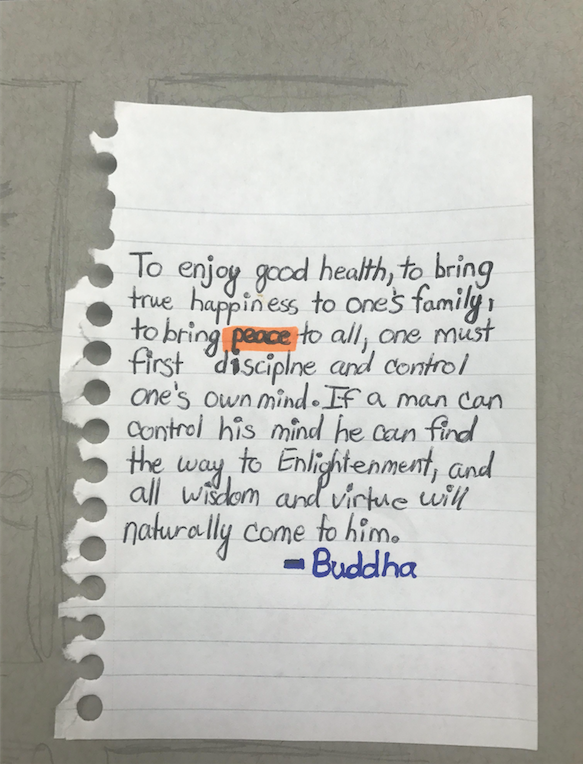 To enjoy good health, to bring
true happiness to one's family,
to bring peace to all, one must
first disciplne and control
one's own mind. If a man can
control his mind he can find
the way to Enlightenment, and
all wisdom and virtue will
naturally come to him.
- Buddha